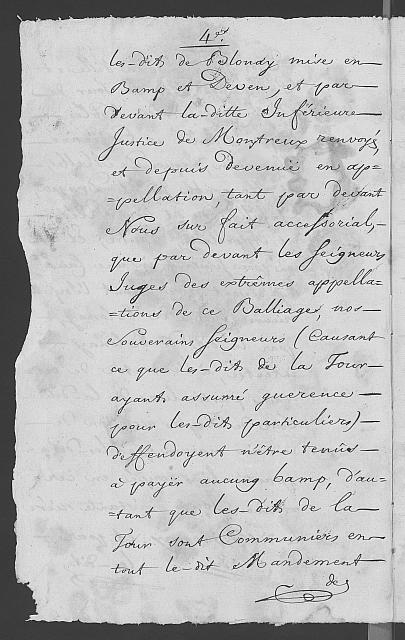 4.
les-dits de Blonay mise en
Bamp et Deven, et par
devant la-ditte Inférieure
Justice de Montreux renvoyé,
et depuis devenuë en ap=
=pellation, tant par devant
Nous sur fait accessorial,
que par devant les Seigneurs
Juges des extrêmes appella=
=tions de ce Balliage, nos
Souverains Seigneurs (Causant
ce que les-dits de la Tour
ayant assumé guerence
pour les-dits particuliers)
deffendoyent n'être tenûs
à payër aucung bamp, d'au=
=tant que les-dits de la
Tour sont Communiers en
tout le-dit Mandement
de